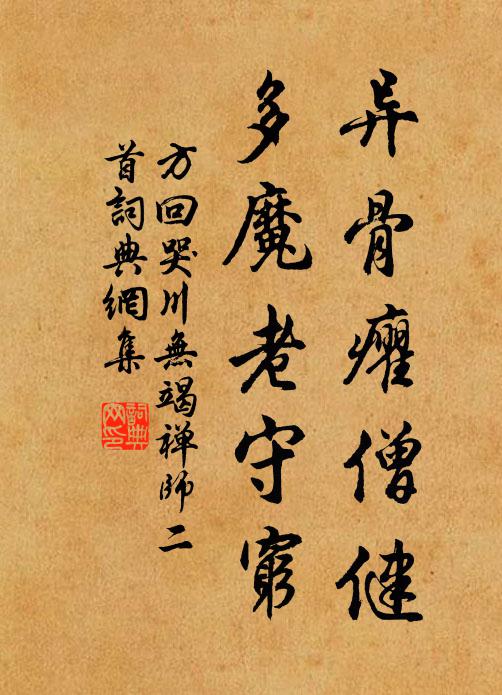 异骨癯僧健
多魔老守窮
方回哭川無竭禅師二
首詞典網集
詞典
网印